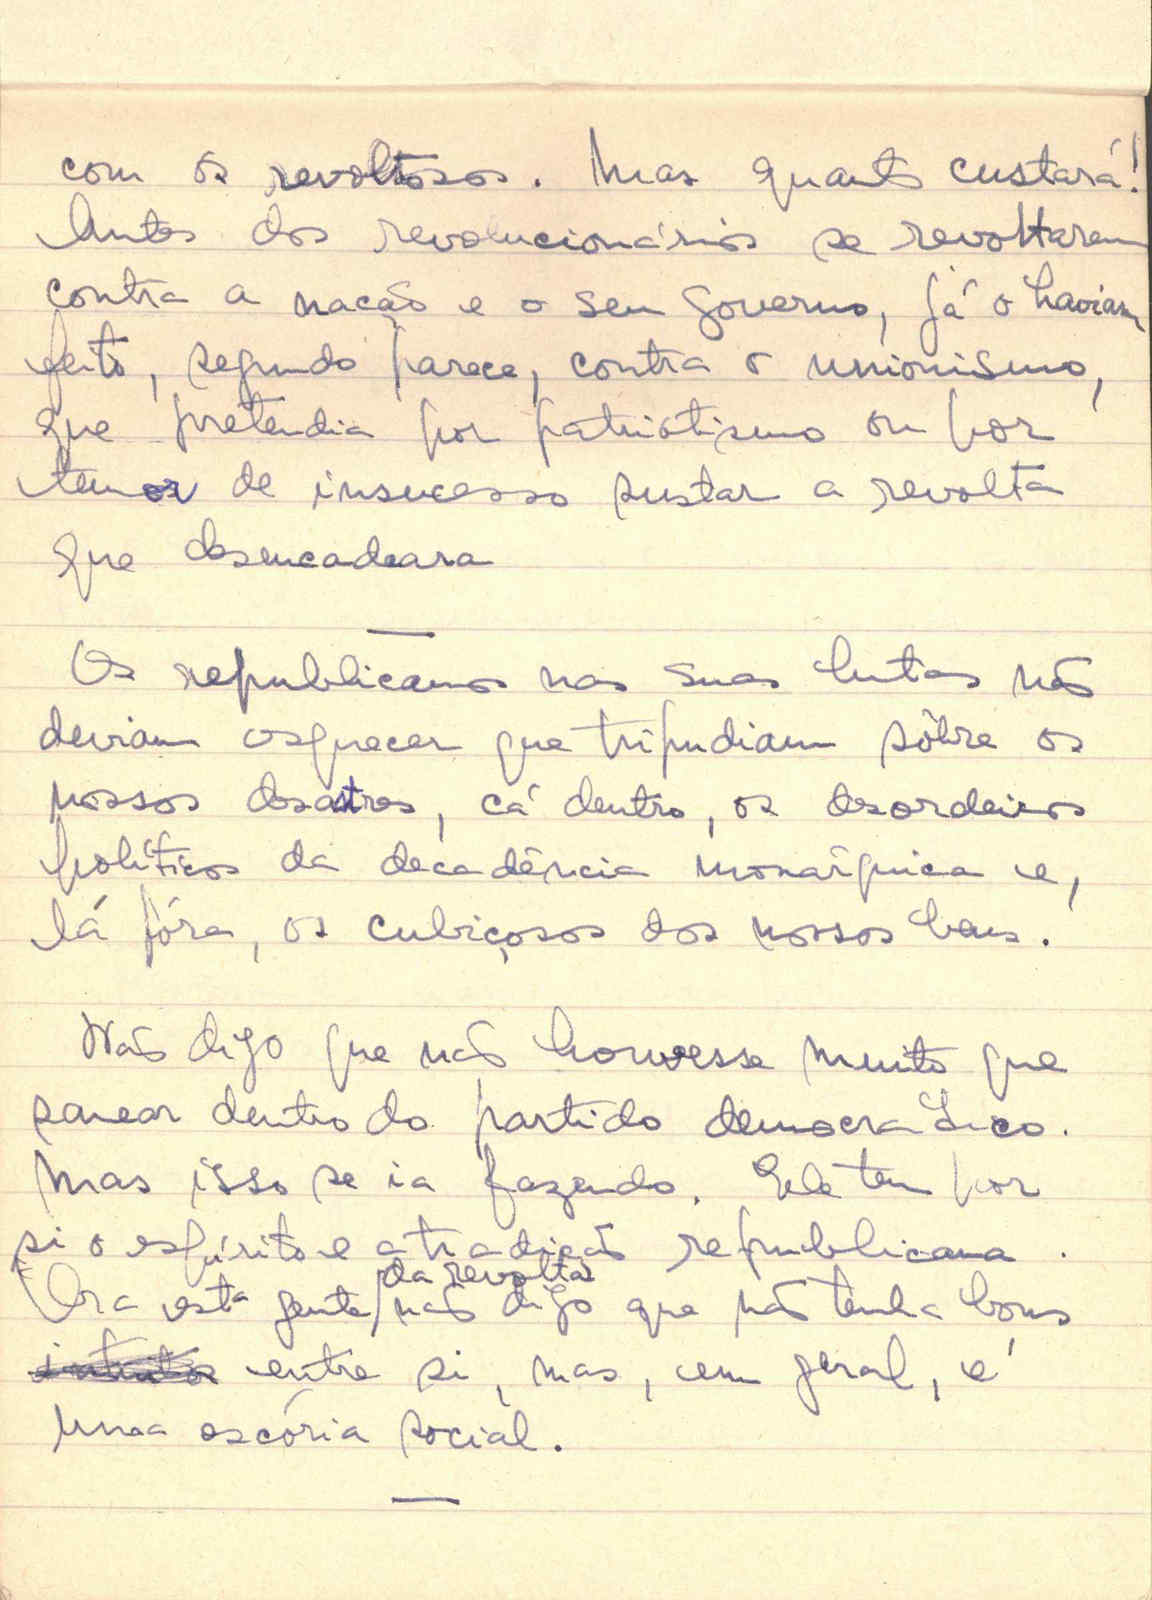 com os revoltosos. Mas quanto custará!
Antes dos revolucionários se revoltarem
contra a nação e o seu governo, já o haviam
feito, segundo parece, contra o unionismo,
que pretendia por patriotismo ou por
temor de insucesso sustar a revolta
que desencadeara
Os republicanos nas suas lutas não
deviam esquecer que tripudiam sôbre os
nossos desastres, cá dentro, os desordeiros
políticos da decadência monárquica e,
lá fóra, os cubiçosos dos nossos bens.
Não digo que não houvesse muito que
sanear dentro do partido democratico.
Mas isso se ia fazendo. Ele tem por
si o espírito e a tradição republicana.
da revolta
Ora esta gente não digo que não tenha bons
intuitos entre si, mas, em geral, é
uma escória social.